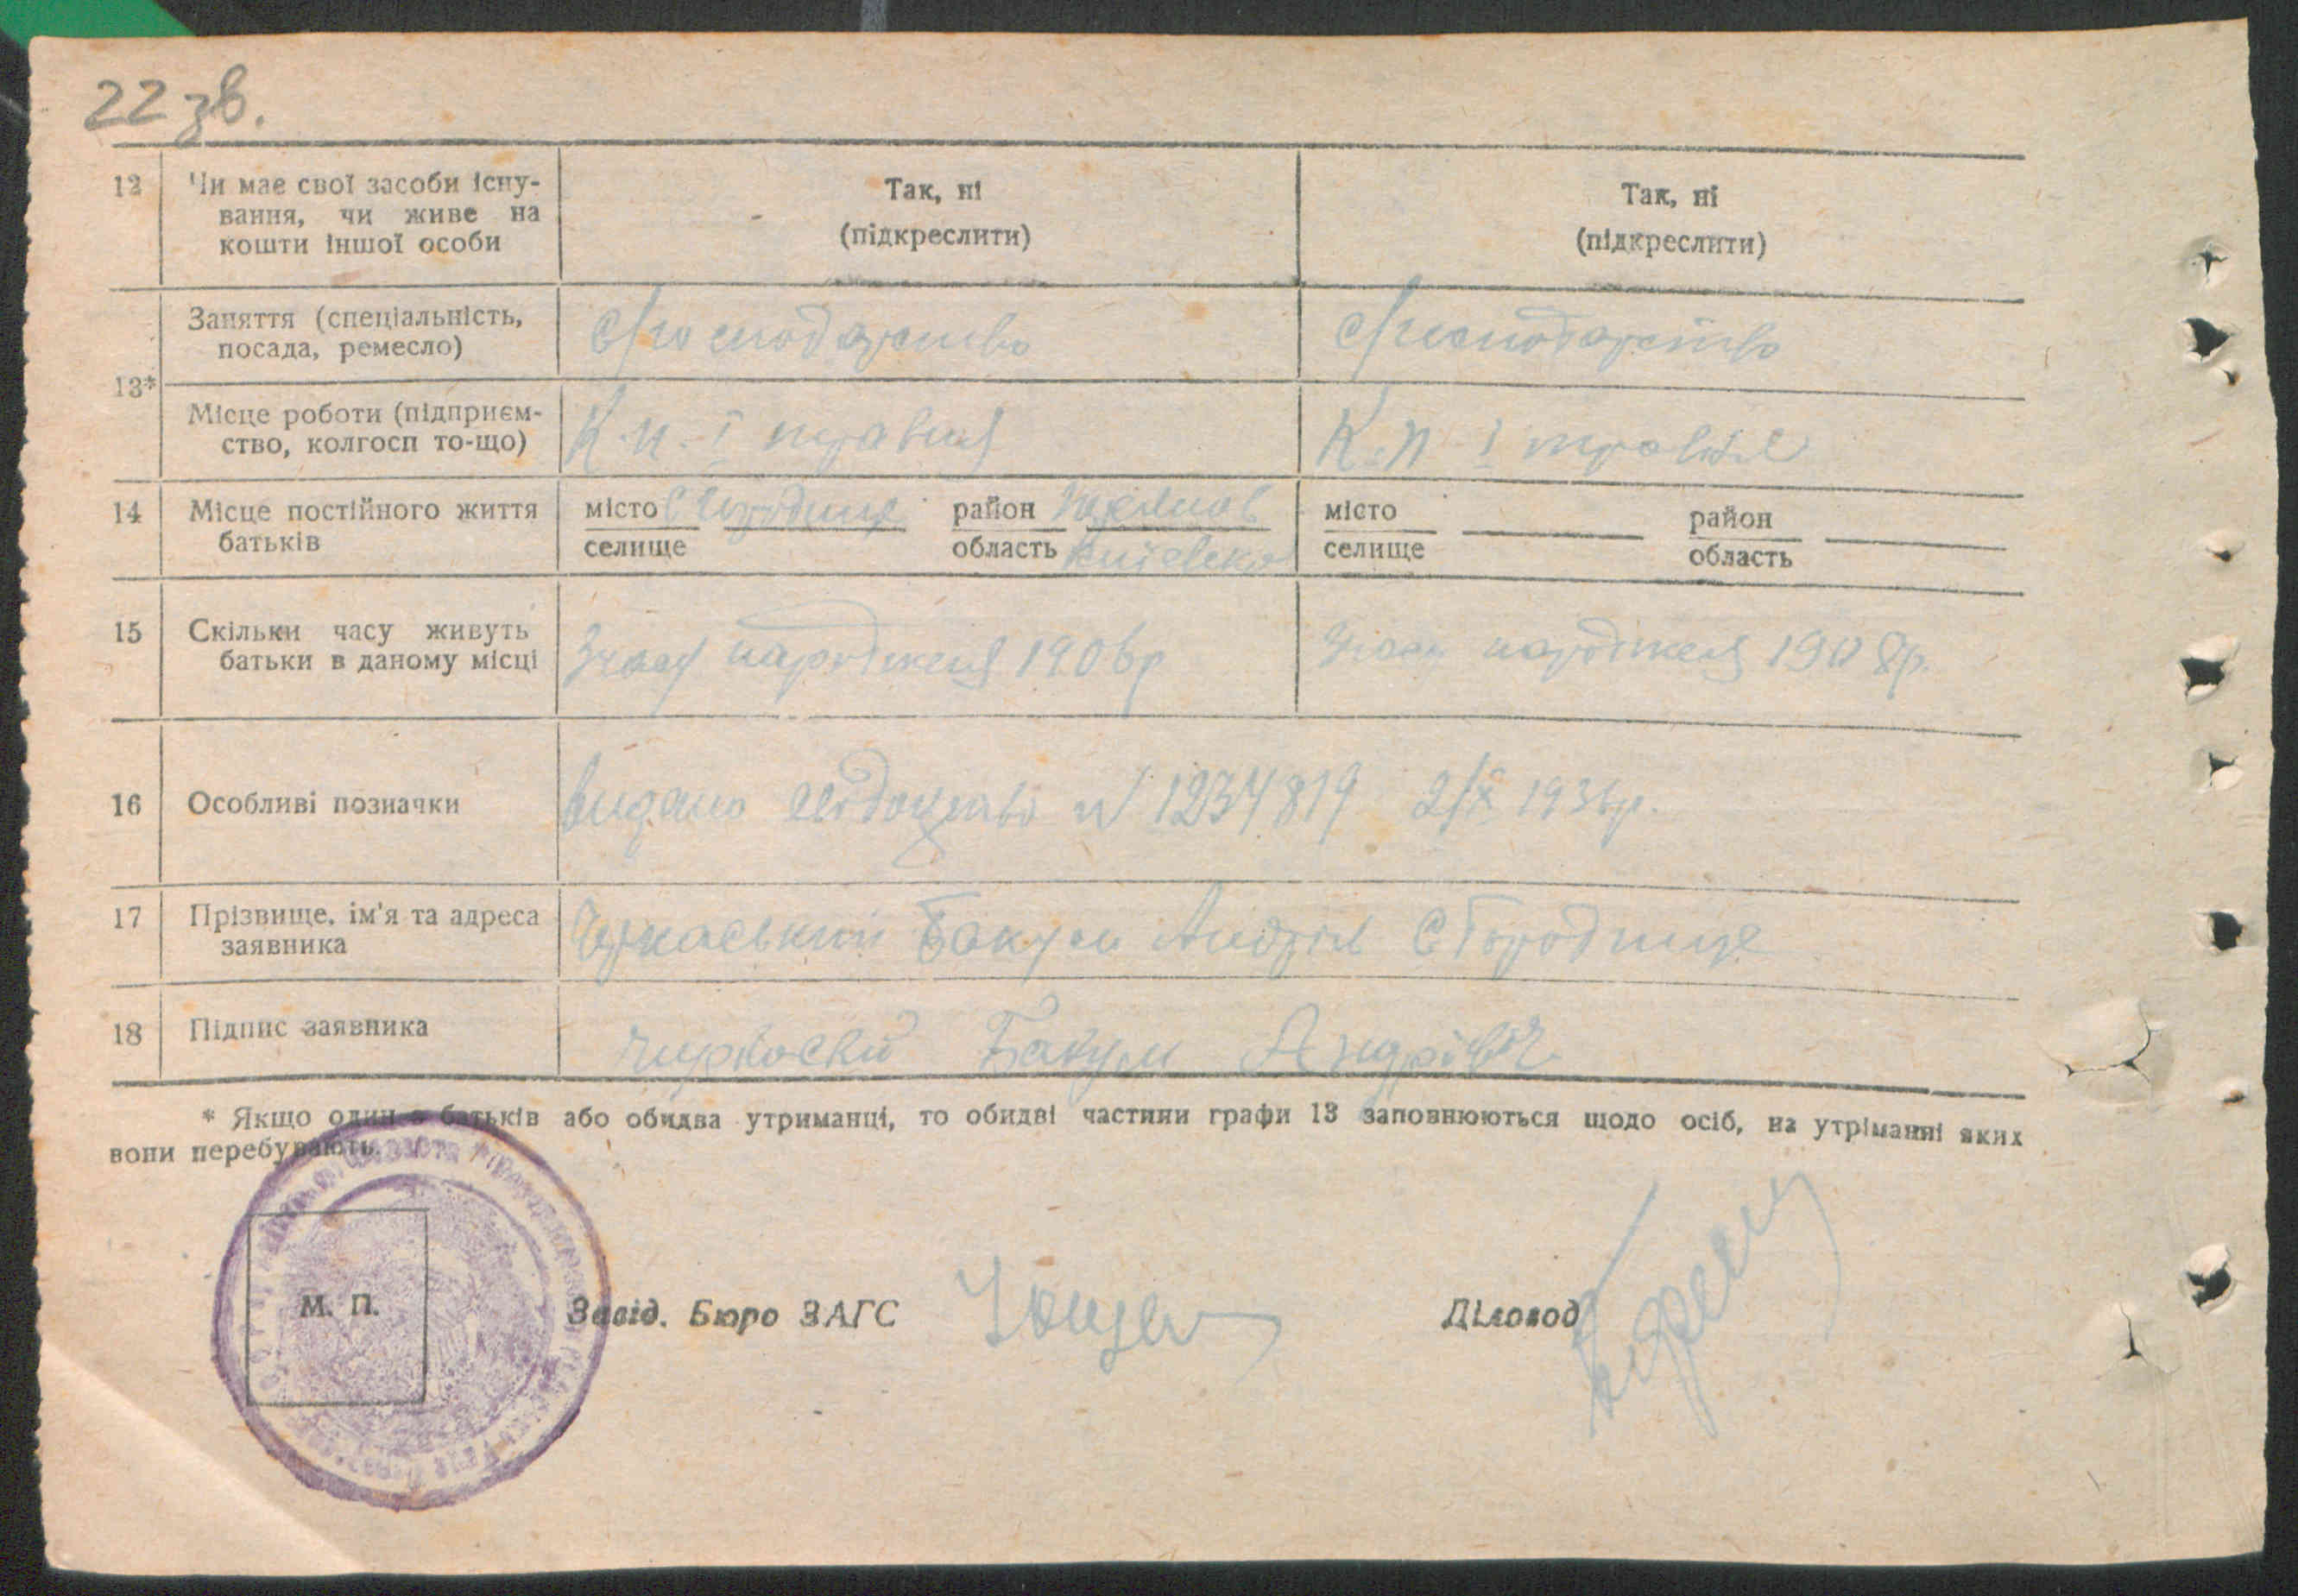 22 зв.
12 Чи має свої засоби існу-
вання, чи живе на
кошти іншої особи
Так, ні
(підкреслити)
Так, ні
(підкреслити)
13*
Заняття (спеціальність,
посада, ремесло)
с/господарство
с/господарство
Місце роботи (підприєм-
ство, колгосп то-що)
К.п. І травня
К.п І травня
14 Місце постійного життя
батьків
місто
селище
район
область
місто
селище
район
область
15 Скільки часу живуть
батьки в даному місці
Зчасу народженя 1906р
Зчасу народженя 1908р.
16 Особливі позначки
видано N 1234819 2/X 1936р.
17 Прізвище, ім'я та адреса
заявника
Черкаський Бакум Андрій С Городище
18 Підпис заявника
Бакум Андрівіч
* Якщо один з батьків або обидва утриманці, то обидві частини графи 13 заповнюються щодо осіб, на утріманні яких
вони перебувають.
М. П.
Завід. Бюро ЗАГС
Діловод